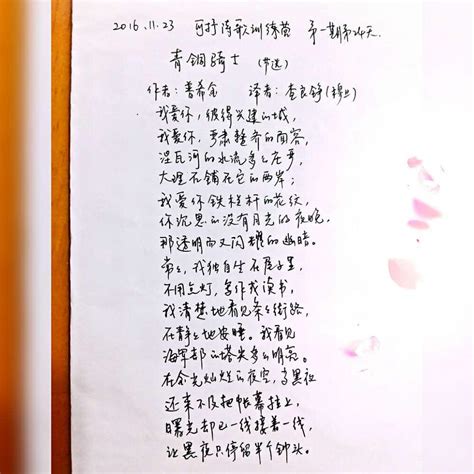 2016.11.23 可抒诗歌训练营 第一期第24天.
青铜骑士 (节选)
作者：普希金 译者：查良铮(穆旦)
我爱你，彼得兴建的城，
我爱你，严肃整齐的面容，
涅瓦河的水流多么庄严，
大理石铺在它的两岸；
我爱你铁栏杆的花纹，
你沉思的没有月光的夜晚，
那透明而又闪耀的幽暗。
常常，我独自坐在屋子里，
不用点灯，写作或读书，
我清楚地看见条条街路，
在静静地安睡。我看见
海军部的塔尖多么明亮。
在金光灿烂的夜空，当黑夜
还来不及把帐幕拉上，
曙光却已一线接着一线，
让黑夜只停留半个钟头。